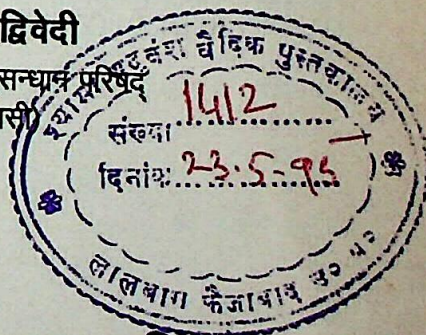 द्विवेदी
सन्धान परिषद्
वैदिक पुस्तकालय
संख्या 1412
दिनांक 23.5-95
लालबाग फैजाबाद उ० प्र०